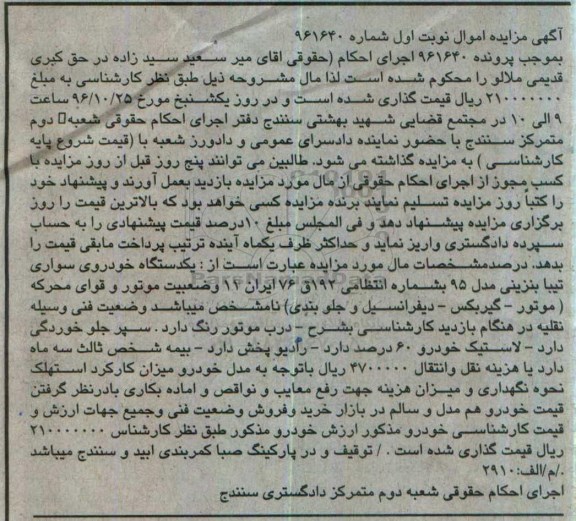 آگهی مزایده اموال نوبت اول شماره ۹۶۱۶۴۰
بموجب پرونده ۹۶۱۶۴۰ اجرای احکام (حقوقی اقای میر سعید سید زاده در حق کبری
قدیمی ملالو را محکوم شده است لذا مال مشروحه ذیل طبق نظر کارشناسی به مبلغ
۲۱۰۰۰۰۰۰۰ ریال قیمت گذاری شده است و در روز یکشنبخ مورخ ۹۶/۱۰/۲۵ ساعت
۹ الی ۱۰ در مجتمع قضایی شهید بهشتی سنندج دفتر اجرای احکام حقوقی شعبه دوم
متمرکز سنندج با حضور نماینده دادسرای عمومی و دادورز شعبه با (قیمت شروع پایه
کارشناسی ) به مزایده گذاشته می شود. طالبین می توانند پنج روز قبل از روز مزایده با
کسب مجوز از اجرای احکام حقوقی از مال مورد مزایده بازدید بعمل آورند و پیشنهاد خود
را کتباً روز مزایده تسلیم نمایند برنده مزایده کسی خواهد بود که بالاترین قیمت را روز
برگزاری مزایده پیشنهاد دهد و فی المجلس مبلغ ۱۰درصد قیمت پیشنهادی را به حساب
سپرده دادگستری واریز نماید و حداکثر ظرف یکماه آینده ترتیب پرداخت مابقی قیمت را
بدهد. درصدمشخصات مال مورد مزایده عبارت است از : یکدستگاه خودروی سواری
تیبا بنزینی مدل ۹۵ بشماره انتظامی ۱۹۲و ۷۶ ایران ۱۱ وضعبیت موتور و قوای محرکه
( موتور - گیربکس - دیفرانسیل و جلو بندی) نامشخص میباشد وضعیت فنی وسیله
نقلیه در هنگام بازدید کارشناسی بشرح - درب موتور رنگ دارد . سپر جلو خوردگی
دارد - لاستیک خودرو ۶۰ درصد دارد - رادیو پخش دارد - بیمه شخص ثالث سه ماه
دارد یا هزینه نقل وانتقال ۴۷۰۰۰۰۰ ریال باتوجه به مدل خودرو میزان کارکرد استهلک
نحوه نگهداری و میزان هزینه جهت رفع معایب و نواقص و اماده بکاری بادرنظر گرفتن
قیمت خودرو هم مدل و سالم در بازار خرید وفروش وضعیت فنی وجمیع جهات ارزش و
قیمت کارشناسی خودرو مذکور ارزش خودرو مذکور طبق نظر کارشناس ۲۱۰۰۰۰۰۰۰
ریال قیمت گذاری شده است . / توقیف و در پارکینگ صبا کمربندی ابید و سنندج میباشد
./م/الف:۲۹۱۰
اجرای احکام حقوقی شعبه دوم متمرکز دادگستری سنندج